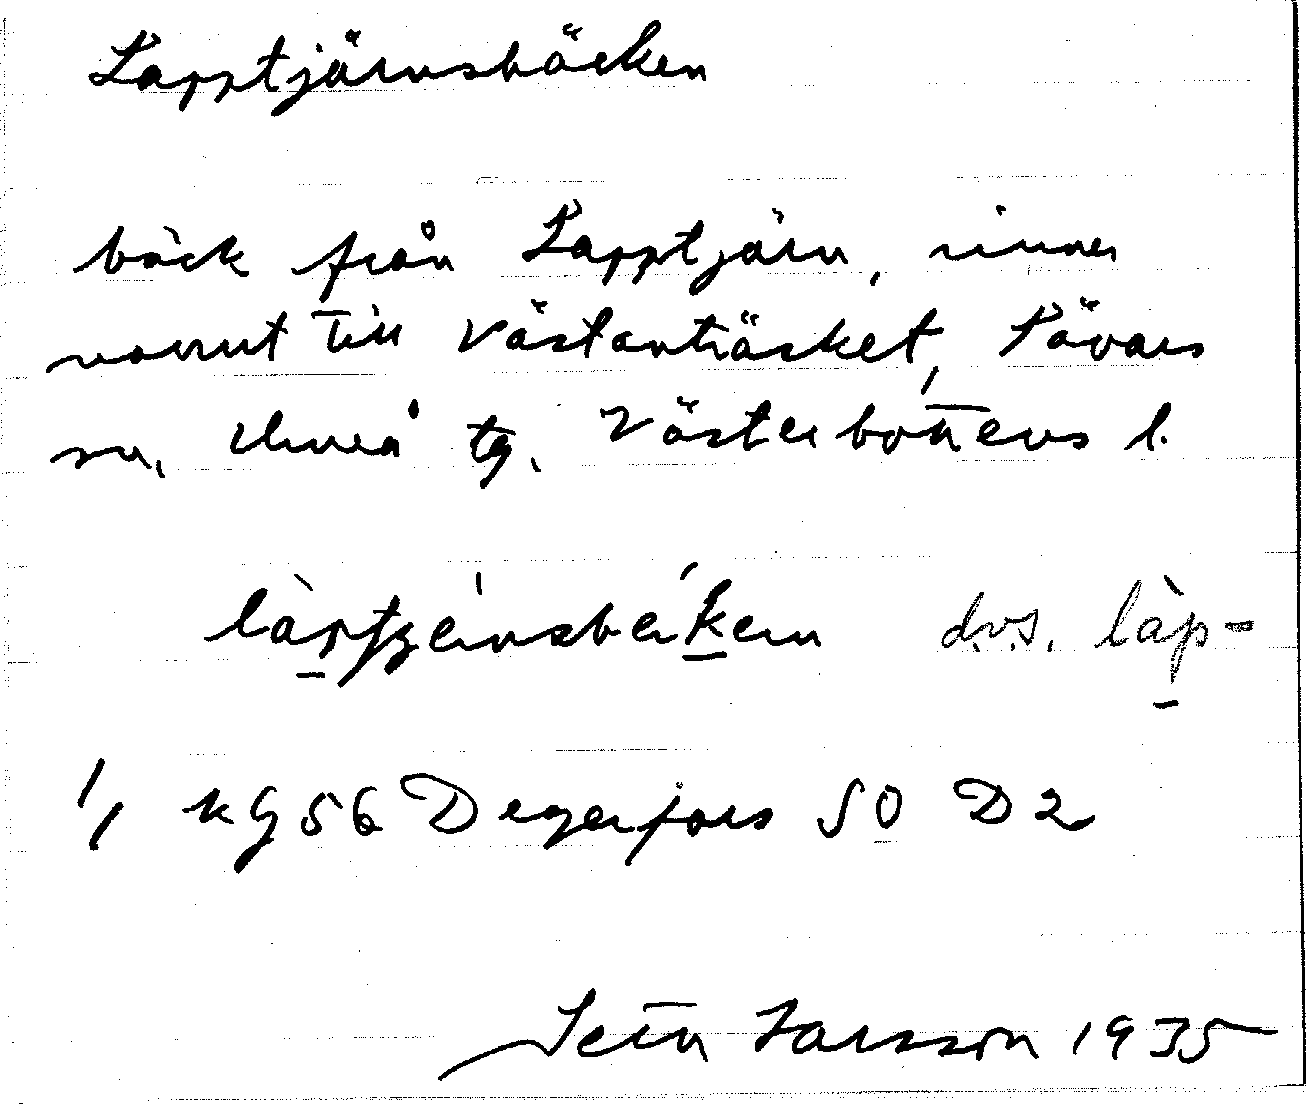 Lapptjärnsbäcken
bäck från Lapptjärn, rinner
norrut till Västanträsket, Sävars
sn, Umeå tg. Västerbottens l.
dvs. làp-
1/1 KG 56 Degerfors SO D 2
Setn Larsson 1935